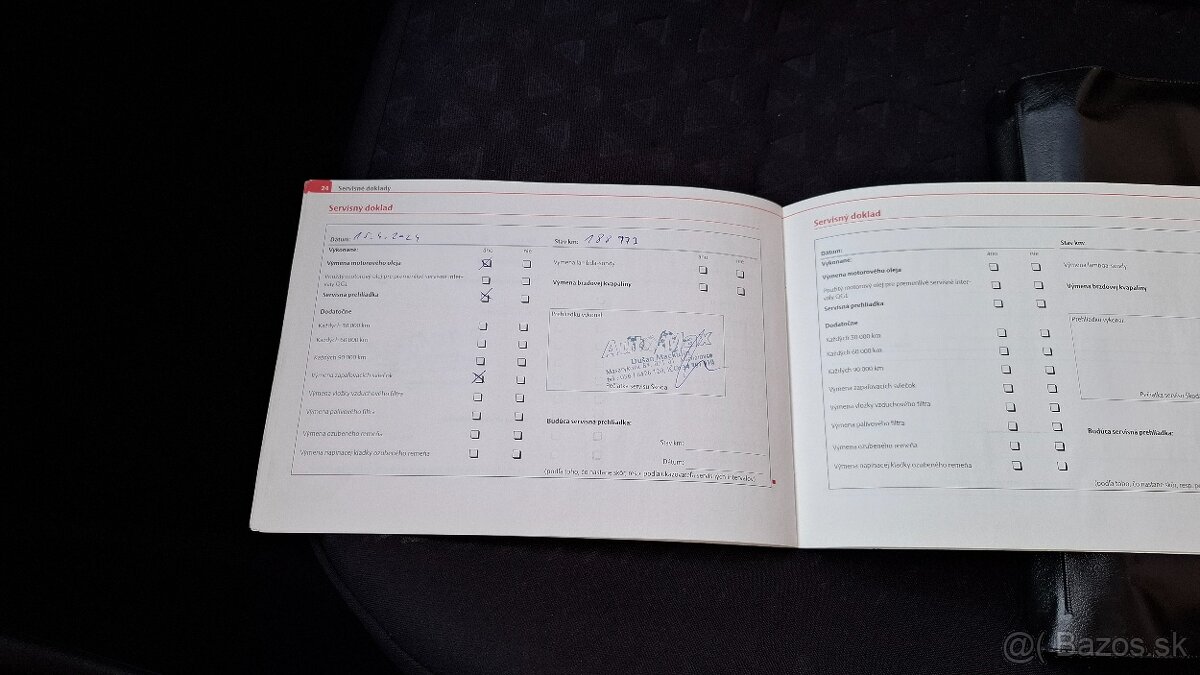 24 Servisné doklady
Servisný doklad
Dátum: 15.4.2024
Stav km: 188 973
Vykonané: áno nie
Výmena motorového oleja
Použitý motorový olej pre premenlivé servisné inter-
valy QG1
Servisná prehliadka
Dodatočne
Každých 30 000 km
Každých 60 000 km
Každých 90 000 km
Výmena zapaľovacích sviečok
Výmena vložky vzduchového filtra
Výmena palivového filtra
Výmena ozubeného remeňa
Výmena napínacej kladky ozubeného remeňa
áno nie
Výmena lambda-sondy
Výmena brzdovej kvapaliny
Prehliadku vykonal:
Dušan
Pečiatka servisu Škoda
Budúca servisná prehliadka:
Stav km:
Dátum:
(podľa toho, čo nastane skôr, resp. podľa ukazovateľa servisných intervalov)
Servisný doklad
Dátum:
Stav km:
Vykonané: áno nie
Výmena motorového oleja
Použitý motorový olej pre premenlivé servisné inter-
valy QG1
Servisná prehliadka
Dodatočne
Každých 30 000 km
Každých 60 000 km
Každých 90 000 km
Výmena zapaľovacích sviečok
Výmena vložky vzduchového filtra
Výmena palivového filtra
Výmena ozubeného remeňa
Výmena napínacej kladky ozubeného remeňa
Výmena lambda-sondy
Výmena brzdovej kvapaliny
Prehliadku vykonal:
Pečiatka servisu Škoda
Budúca servisná prehliadka:
(podľa toho, čo nastane skôr, resp.
Bazos.sk